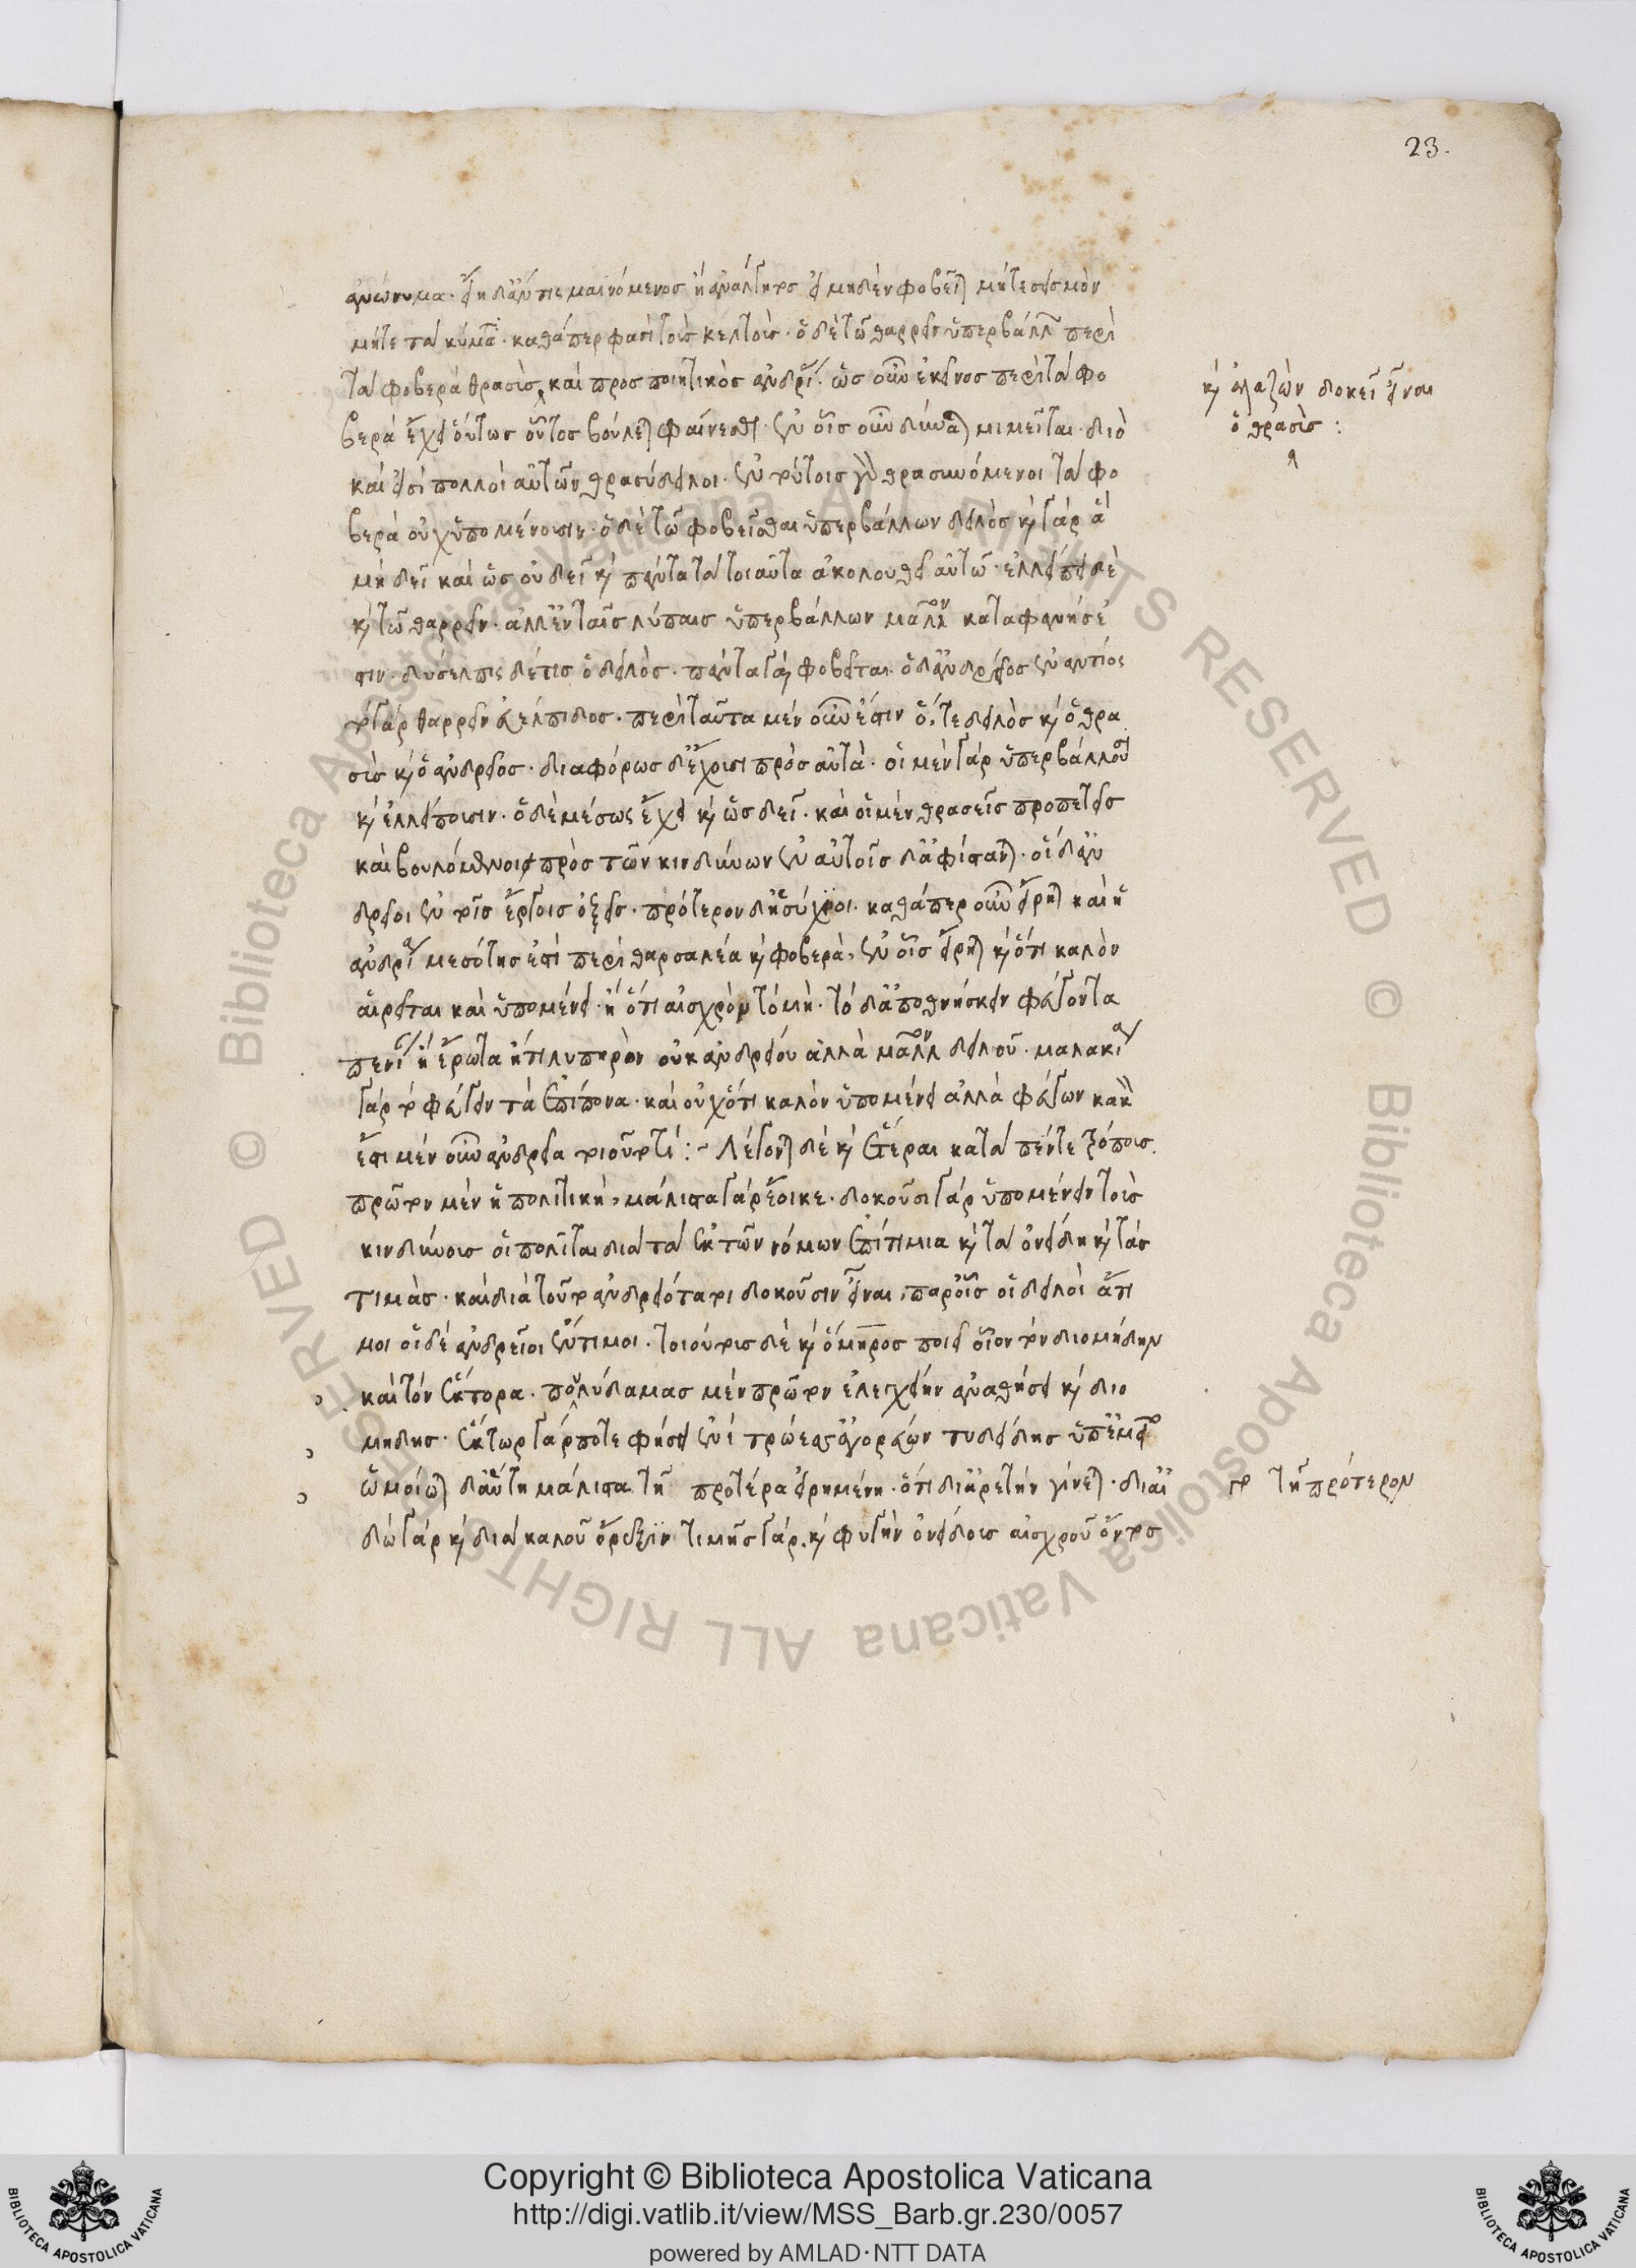 23.
ἀνώνυμα· εἴη δ' ἄν τις μαινόμενος ἢ ἀνάλγητος εἰ μηδὲν φοβεῖται μήτε σεισμὸν
μήτε τὰ κύματα· καθάπερ φασὶ τοὺς κελτούς· ὁ δὲ τῷ θαρρεῖν ὑπερβάλλων περὶ
τὰ φοβερὰ θρασὺς, καὶ προσποιητικὸς ἀνδρίας· ὡς οὖν ἐκεῖνος περὶ τὰ φο
βερὰ ἔχει οὕτως οὗτος βούλεται φαίνεσθαι· ἐν οἷς οὖν δύναται μιμεῖται· διὸ
καὶ εἰσὶ πολλοὶ αὐτῶν θρασύδειλοι· ἐν τούτοις γὰρ θρασυνόμενοι τὰ φο
βερὰ οὐχ ὑπομένουσιν· ὁ δὲ τῷ φοβεῖσθαι ὑπερβάλλων δειλὸς καὶ γὰρ ἃ
μὴ δεῖ καὶ ὡς οὐ δεῖ καὶ πάντα τὰ τοιαῦτα ἀκολουθεῖ αὐτῷ· ἐλλείπει δὲ
καὶ τῷ θαρρεῖν· ἀλλ' ἐν ταῖς λύπαις ὑπερβάλλων μᾶλλον καταφανής ἐ
στιν· δύσελπις δέ τις ὁ δειλὸς· πάντα γὰρ φοβεῖται· ὁ δ' ἀνδρεῖος ἐναντίος
τὸ γὰρ θαρρεῖν εὐέλπιδος· περὶ ταῦτα μὲν οὖν ἐστιν ὅ, τε δειλὸς καὶ ὁ θρα
σὺς καὶ ὁ ἀνδρεῖος· διαφόρως δ' ἔχουσι πρὸς αὐτὰ· οἱ μὲν γὰρ ὑπερβάλλουσι
καὶ ἐλλείπουσιν· ὁ δὲ μέσως ἔχει καὶ ὡς δεῖ· καὶ οἱ μὲν θρασεῖς προπετεῖς
καὶ βουλόμενοι πρὸς τῶν κινδύνων ἐν αὐτοῖς δ' ἀφίστανται· οἱ δ' ἀν
δρεῖοι ἐν τοῖς ἔργοις ὀξεῖς· πρότερον δ' ἡσύχιοι· καθάπερ οὖν εἴρηται καὶ ἡ
ἀνδρία μεσότης ἐστὶ περὶ θαρσαλέα καὶ φοβερὰ, ἐν οἷς εἴρηται καὶ ὅτι καλὸν
αἱρεῖται καὶ ὑπομένει· ἢ ὅτι αἰσχρὸν τὸ μὴ· τὸ δ' ἀποθνήσκειν φεύγοντα
πενίαν ἢ ἔρωτα ἤ τι λυπηρὸν οὐκ ἀνδρείου ἀλλὰ μᾶλλον δειλοῦ· μαλακία
γὰρ τὸ φεύγειν τὰ ἐπίπονα· καὶ οὐχ ὅτι καλὸν ὑπομένει ἀλλὰ φεύγων κακὸν
ἔστι μὲν οὖν ἀνδρεία τοιοῦτό τι :– Λέγονται δὲ καὶ ἕτεραι κατὰ πέντε τρόπους·
πρῶτον μὲν ἡ πολιτική, μάλιστα γὰρ ἔοικε· δοκοῦσι γὰρ ὑπομένειν τοὺς
κινδύνους οἱ πολῖται διὰ τὰ ἐκ τῶν νόμων ἐπιτίμια καὶ τὰ ὀνείδη καὶ τὰς
τιμὰς· καὶ διὰ τοῦτο ἀνδρειότατοι δοκοῦσιν εἶναι, παρ' οἷς οἱ δειλοὶ ἄτι
μοι οἱ δὲ ἀνδρεῖοι ἔντιμοι· τοιούτους δὲ καὶ ὅμηρος ποιεῖ οἷον τὸν διομήδην
καὶ τὸν ἕκτορα· πολύδαμας μὲν πρῶτον ἐλεγχείην ἀναθήσει καὶ διο
μήδης· ἕκτωρ γάρ ποτε φήσει ἐνὶ τρώεσσ' ἀγορεύων τυδείδης ὑπ' ἐμεῖο
ὡμοίωται δ' αὕτη μάλιστα τῇ προτέρα εἰρημένη· ὅτι δι' ἀρετὴν γίνεται· δι' αἰ
δῶ γὰρ καὶ διὰ καλοῦ ὄρεξιν τιμῆς γάρ. καὶ φυγὴν ὀνείδους αἰσχροῦ ὄντος
καὶ ἀλαζὼν δοκεῖ εἶναι
ὁ θρασὺς :
τῇ πρότερον